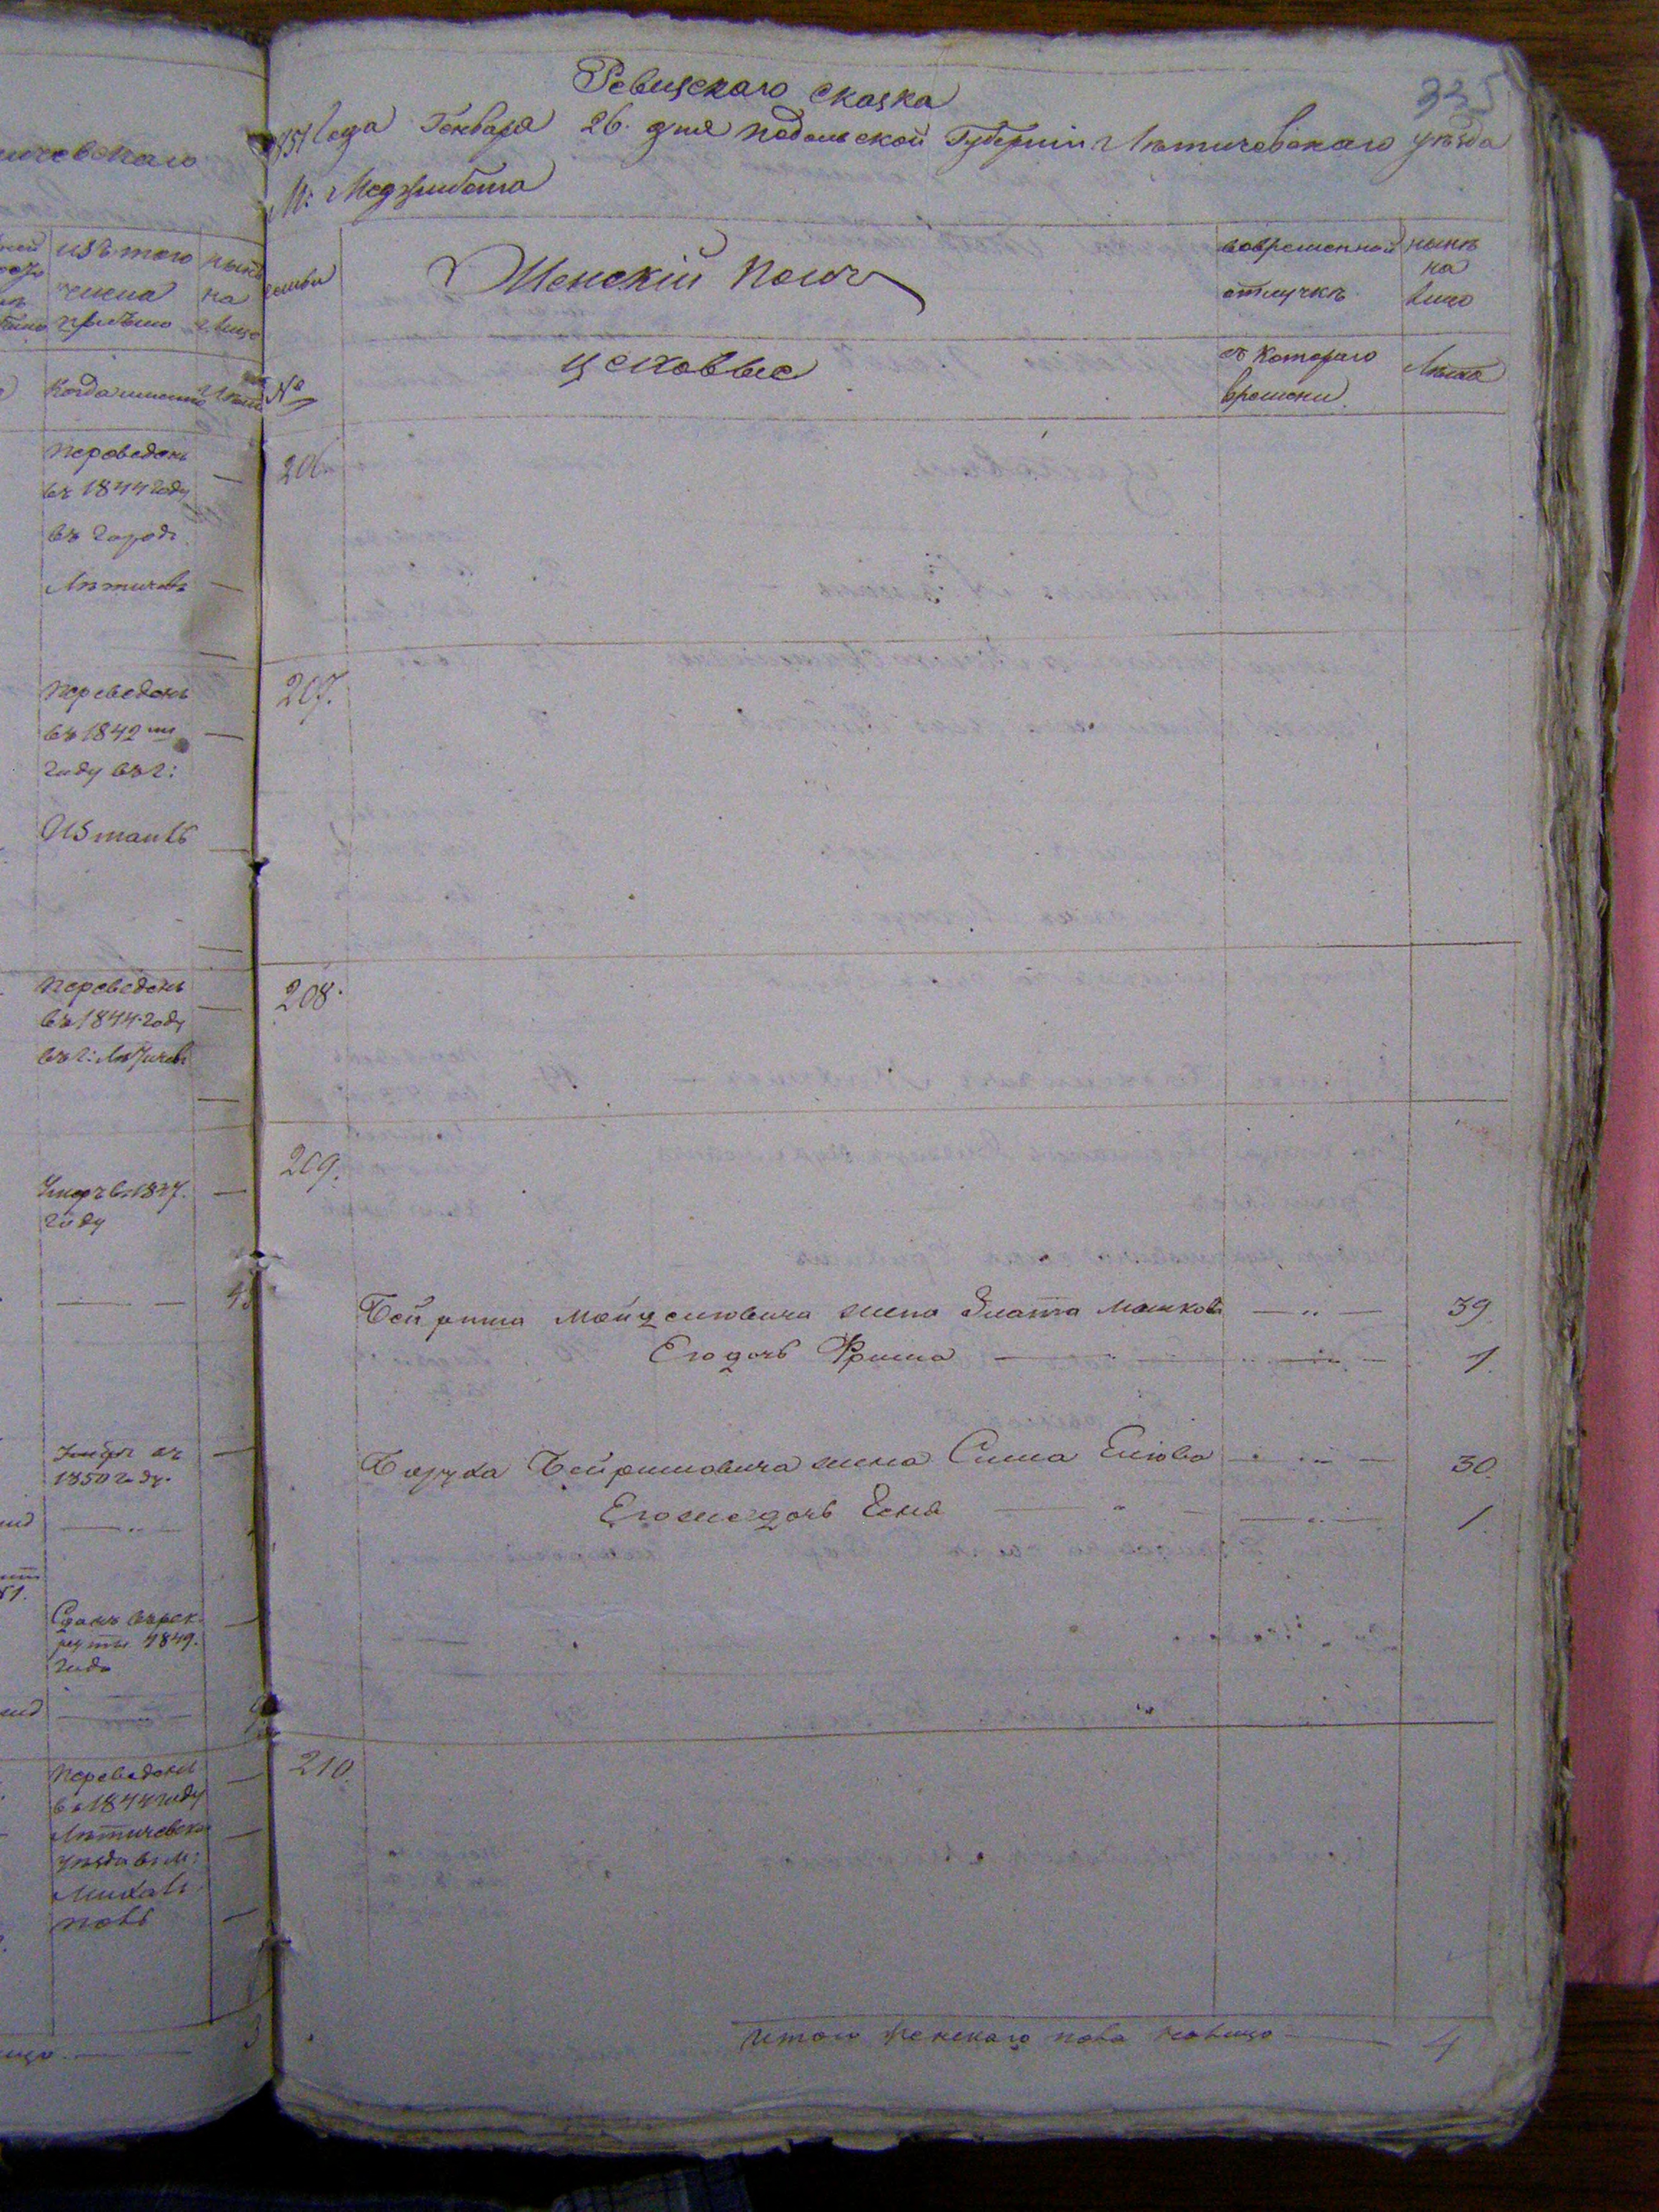 чевскаго
изъ того
числа
прибыло
нынѣ
на
лицо
Когда именно
Лѣта
переведенъ
въ 1844 году
въ городъ
Лѣтичевъ
переведенъ
въ 1842 мъ
году въ г:
переведенъ
въ 1844 году
въ г: Лѣтичевъ
Умеръ в. 1847.
году
Умеръ въ
1850 году.
Сданъ въ рек-
руты 1849.
года
переведенъ
въ 1844 году
Лѣтичевска
уѣзда в: м:
335
Ревизская сказка
1851 года Генваря 26. дня Подольской Губерніи Лѣтичевскаго уѣзда
М: Меджибожа
семьи
Женскій полъ
вовременной
отлучкѣ
нынѣ
на
лицо
№
цеховые
съ котораго
времени
Лѣта
206.
207.
208.
209.
Бейриша Мойцеловича жена Злата Машкова — " — 39.
Его дочь Фрима — " — 1.
Боруха Бейришовича жена Сима Елiова — " — 30.
Его же дочь Ента — " — 1.
210.
Итого женскаго пола налицо — 4